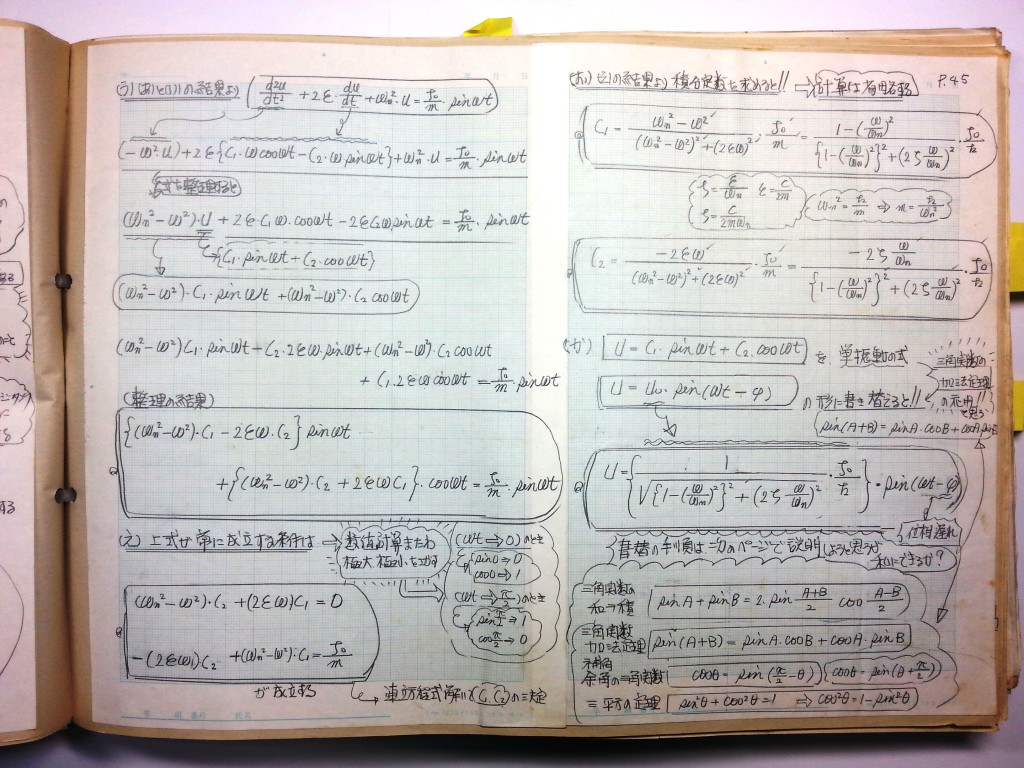 (う) (あ)と(い)の結果より d²u/dt² + 2ε・du/dt + ωn²・u = f0/m・sinωt
(-ω²・u) + 2ε{C1・ωcosωt - C2・ωsinωt} + ωn²・u = f0/m・sinωt
式を整理すると
(ωn² - ω²)・u + 2εC1ω・cosωt - 2εC2ωsinωt = f0/m・sinωt
{C1・sinωt + C2・cosωt}
(ωn² - ω²)・C1・sinωt + (ωn² - ω²)・C2cosωt
(ωn² - ω²)C1・sinωt - C2・2εω・sinωt + (ωn² - ω²)・C2cosωt
+ C1・2εωcosωt = f0/m・sinωt
(整理の結果)
{(ωn² - ω²)・C1 - 2εω・C2}sinωt
+ {(ωn² - ω²)・C2 + 2εωC1}・cosωt = f0/m・sinωt
(え) 上式が常に成立する条件は
数値計算または
極大、極小
(ωt ⇒ 0)のとき
sin0 ⇒ 0
cos0 ⇒ 1
(ωt ⇒ π/2)のとき
sinπ/2 ⇒ 1
cosπ/2 ⇒ 0
(ωn² - ω²)・C2 + (2εω)C1 = 0
-(2εω)・C2 + (ωn² - ω²)・C1 = f0/m
が成立する
連立方程式 解いて(C1, C2)の決定
P.45
(お) (え)の結果より積分定数を求めると!! → 計算は省略する
C1 = (ωn² - ω²)/((ωn² - ω²)² + (2εω)²)・f0/m = (1 - (ω/ωn)²)/({1 - (ω/ωn)²}² + (2ζω/ωn)²)・f0/k
ζ = ε/ωn ε = c/2m
ζ = c/2mωn
ωn² = k/m ⇒ m = k/ωn²
C2 = (-2εω)/((ωn² - ω²)² + (2εω)²)・f0/m = (-2ζω/ωn)/({1 - (ω/ωn)²}² + (2ζω/ωn)²)・f0/k
(か) u = C1・sinωt + C2・cosωt を、単振動の式
u = u0・sin(ωt - φ) の形に書き替えると!!
三角関数の
加法定理
の応用!!
と思う
sin(A+B) = sinA・cosB + cosA・sinB
u = {1/√({1 - (ω/ωn)²}² + (2ζω/ωn)²)・f0/k}・sin(ωt - φ)
位相遅れ
書替の手順は次のページで説明しようと思うが
私にできるか?
三角関数の
和→積 sinA + sinB = 2・sin (A+B)/2 cos (A-B)/2
三角関数
加法定理 sin(A+B) = sinA・cosB + cosA・sinB
余角の三角関数 cosθ = sin(π/2 - θ) cosθ = sin(θ + π/2)
= 平方の定理 sin²θ + cos²θ = 1 ⇒ cos²θ = 1 - sin²θ